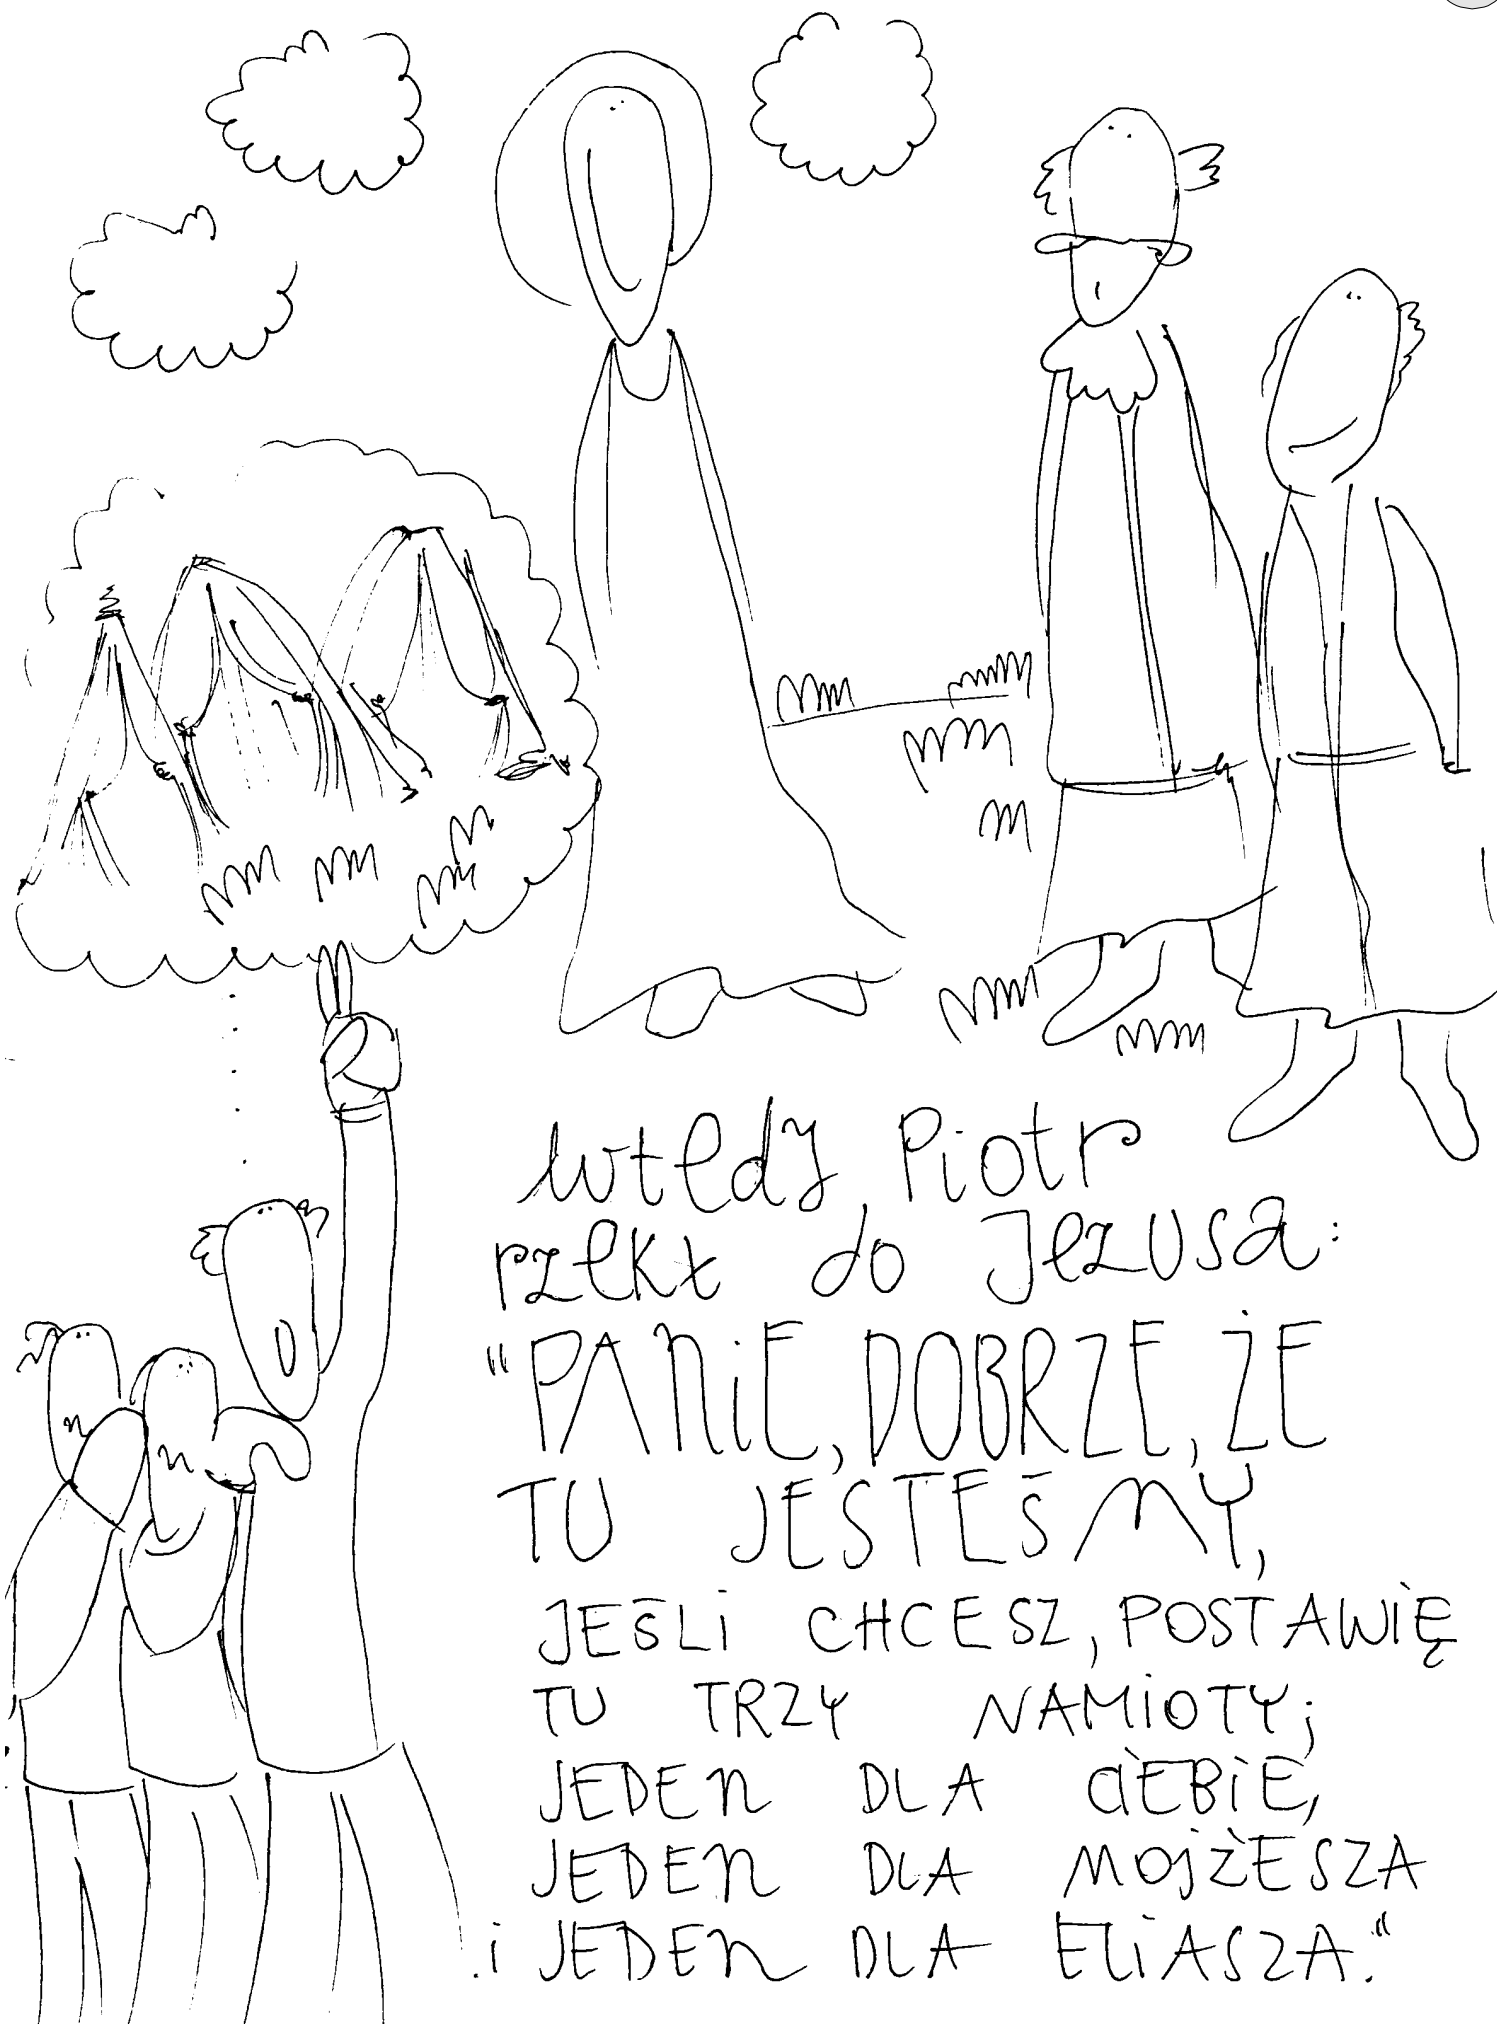 wtedy Piotr
rzekł do Jezusa:
"PANiE, DOBRZE, ŻE
TU JESTEŚMY,
JEŚLi CHCESZ, POSTAWiĘ
TU TRZY NAMiOTY;
JEDEN DLA CiEBiE,
JEDEN DLA MOJŻESZA
i JEDEN DLA ELiASZA."